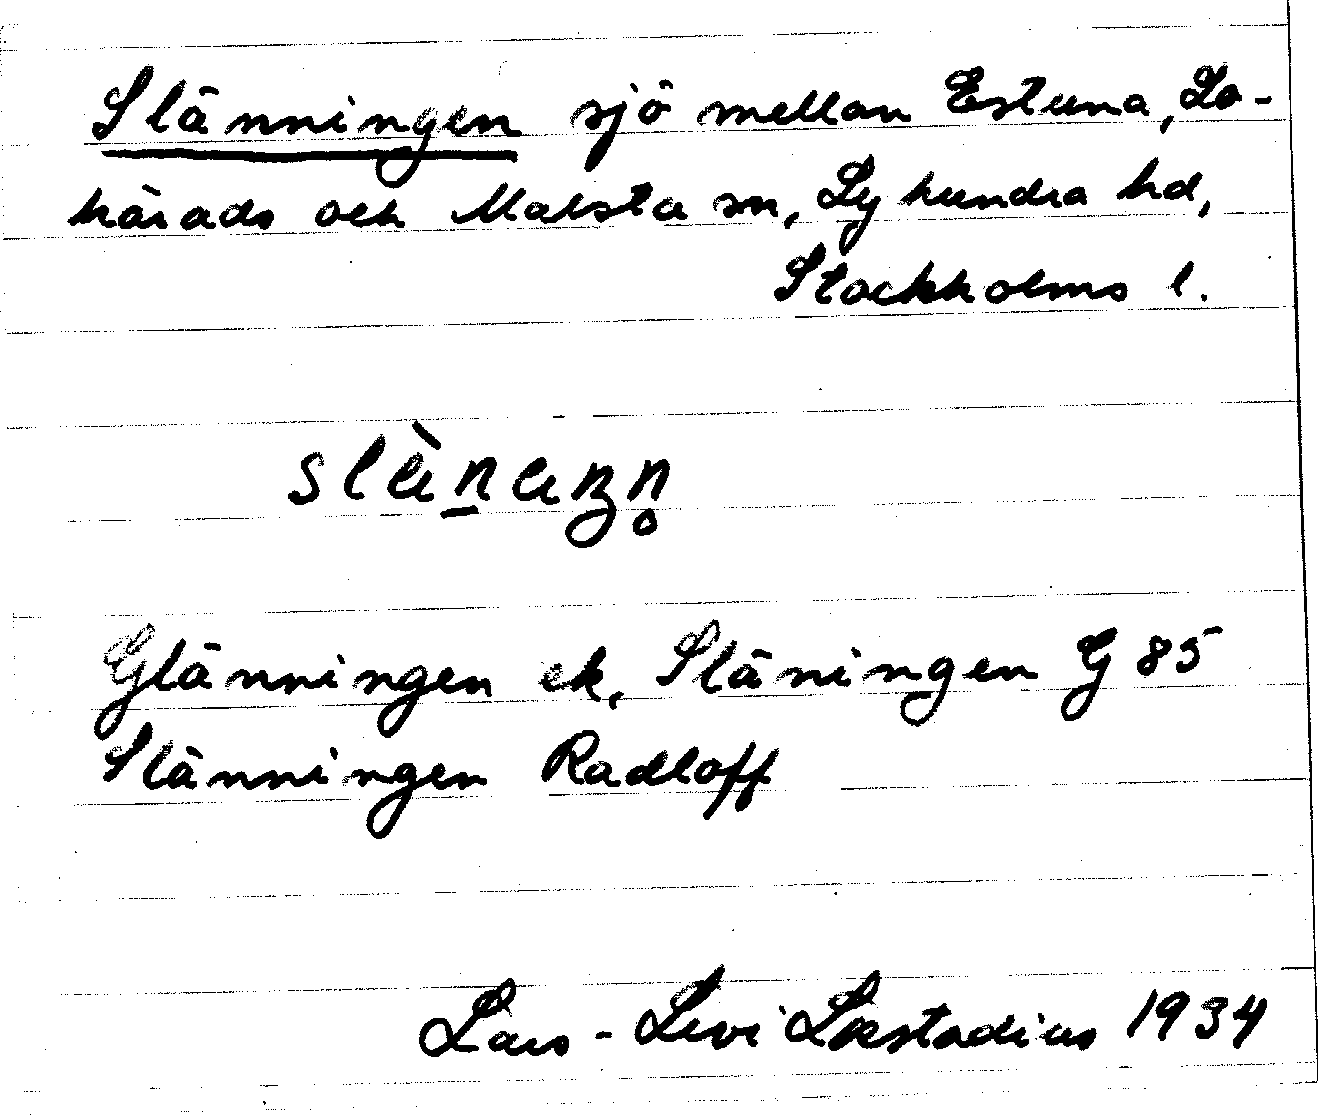 Slänningen sjö mellan Estuna, Lo-
härads och Malsta sn, Lyhundra hd,
Stockholms l.
Glänningen ek. Släningen G 85
Slänningen Radloff
Lars-Levi Læstadius 1934